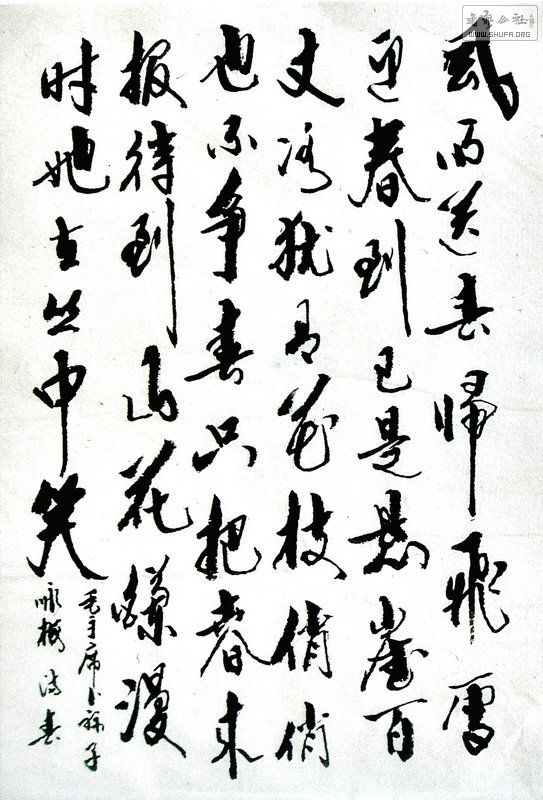 風雨送春帰飛雪
迎春到已是悬崖百
丈冰犹有花枝俏俏
也不争春只把春来
报待到山花爛漫
时她在丛中笑
毛主席卜算子
咏梅
書法公社
WWW.SHUFA.ORG